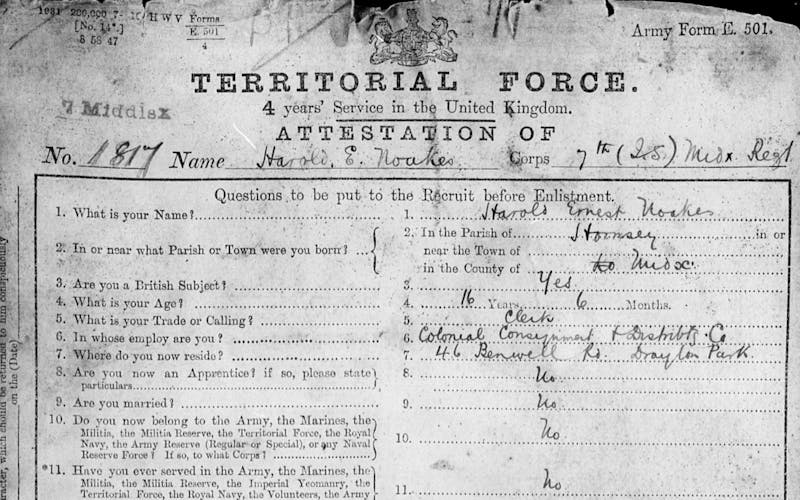 1931 200,000 7- HWV Forms
[No. 14.] E. 501
8 58 47 4
Army Form E. 501.
TERRITORIAL FORCE.
7 Middlsx
4 years' Service in the United Kingdom.
ATTESTATION OF
No. 1817 Name Harold. E. Noakes Corps 7th (I.S.) Midx. Regt
Questions to be put to the Recruit before Enlistment.
1. What is your Name? 1. Harold Ernest Noakes
2. In or near what Parish or Town were you born? 2. In the Parish of Hornsey in or
near the Town of
in the County of Midx.
3. Are you a British Subject? 3. Yes
4. What is your Age? 4. 16 Years 6 Months.
5. What is your Trade or Calling? 5. Clerk
6. In whose employ are you? 6. Colonial Consignment & Distribtg. Co
7. Where do you now reside? 7. 46 Benwell Rd. Drayton Park
8. Are you now an Apprentice? if so, please state 8. No
particulars
9. Are you married? 9. No
10. Do you now belong to the Army, the Marines, the 10. No
Militia, the Militia Reserve, the Territorial Force, the Royal
Navy, the Army Reserve (Regular or Special), or any Naval
Reserve Force? If so, to what Corps?
*11. Have you ever served in the Army, the Marines, the 11. No
Militia, the Militia Reserve, the Imperial Yeomanry, the
Territorial Force, the Royal Navy, the Volunteers, the Army
which should be returned to him conspicuously
on the (Date)